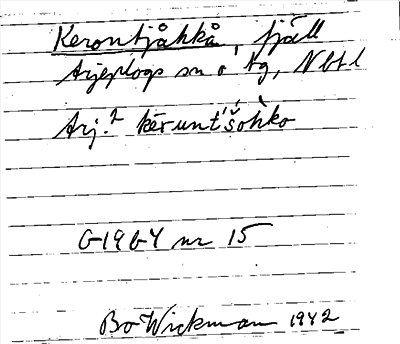 Kerontjåhkå, fjäll
Arjeplogs sn o tg, Nbtl
Arj.² kēruntšohko
G1964 nr 15
Bo Wickman 1942